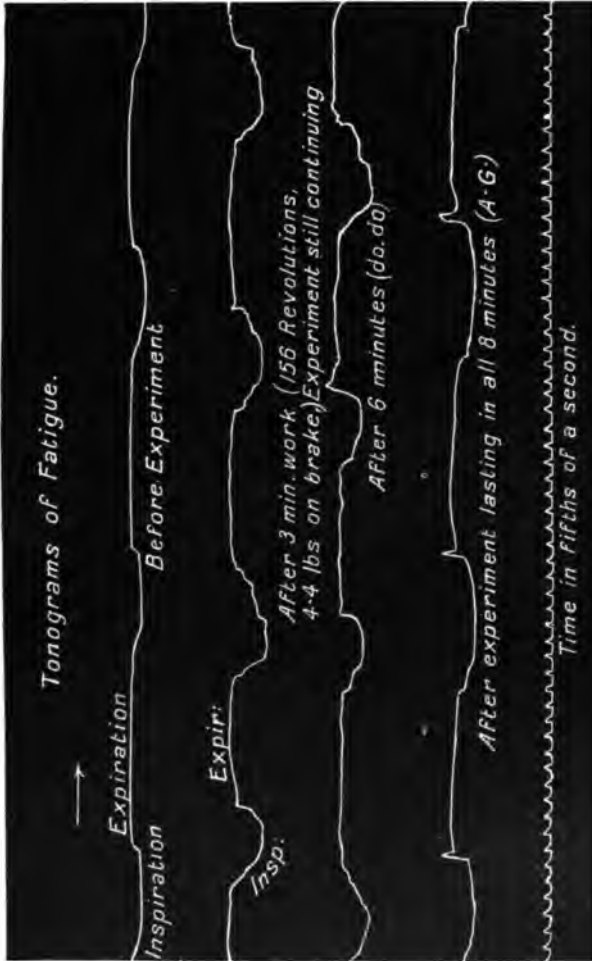 Tonograms of Fatigue.
Expiration
Inspiration
Before Experiment
Expir:
Insp:
After 3 min. work (156 Revolutions,
4·4 lbs on brake,) Experiment still continuing
After 6 minutes (do. do)
After experiment lasting in all 8 minutes (A·G)
Time in fifths of a second.